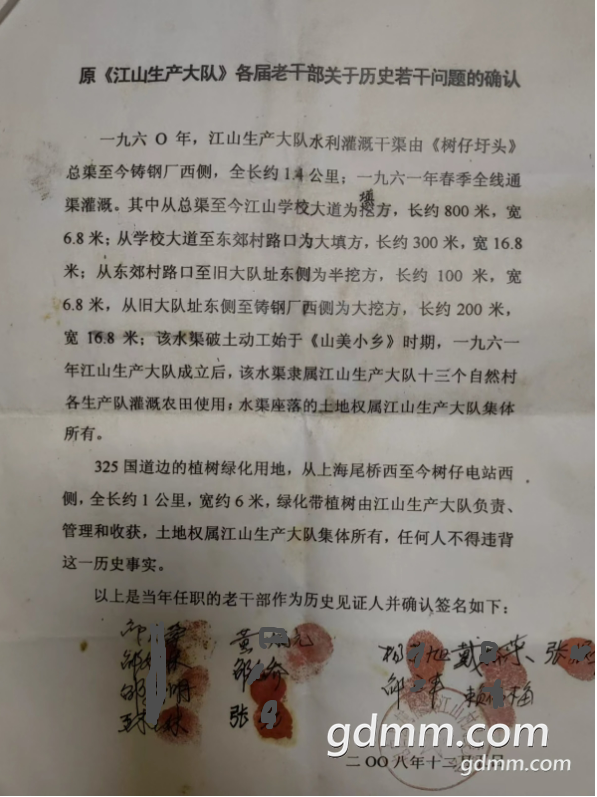 原《江山生产大队》各届老干部关于历史若干问题的确认
一九六O年，江山生产大队水利灌溉干渠由《树仔圩头》
总渠至今铸钢厂西侧，全长约1.4公里；一九六一年春季全线通
填
渠灌溉。其中从总渠至今江山学校大道为挖方，长约800米，宽
6.8米；从学校大道至东郊村路口为大填方，长约300米，宽16.8
米；从东郊村路口至旧大队址东侧为半挖方，长约100米，宽
6.8米，从旧大队址东侧至铸钢厂西侧为大挖方，长约200米，
宽16.8米；该水渠破土动工始于《山美小乡》时期，一九六一
年江山生产大队成立后，该水渠隶属江山生产大队十三个自然村
各生产队灌溉农田使用；水渠座落的土地权属江山生产大队集体
所有。
325国道边的植树绿化用地，从上海尾桥西至今树仔电站西
侧，全长约1公里，宽约6米，绿化带植树由江山生产大队负责、
管理和收获，土地权属江山生产大队集体所有，任何人不得违背
这一历史事实。
以上是当年任职的老干部作为历史见证人并确认签名如下：
黄 杨 戴 张
邹
明 邹 赖 梅
张
江山
二OO八年十二月
gdmm.com
gdmm.com